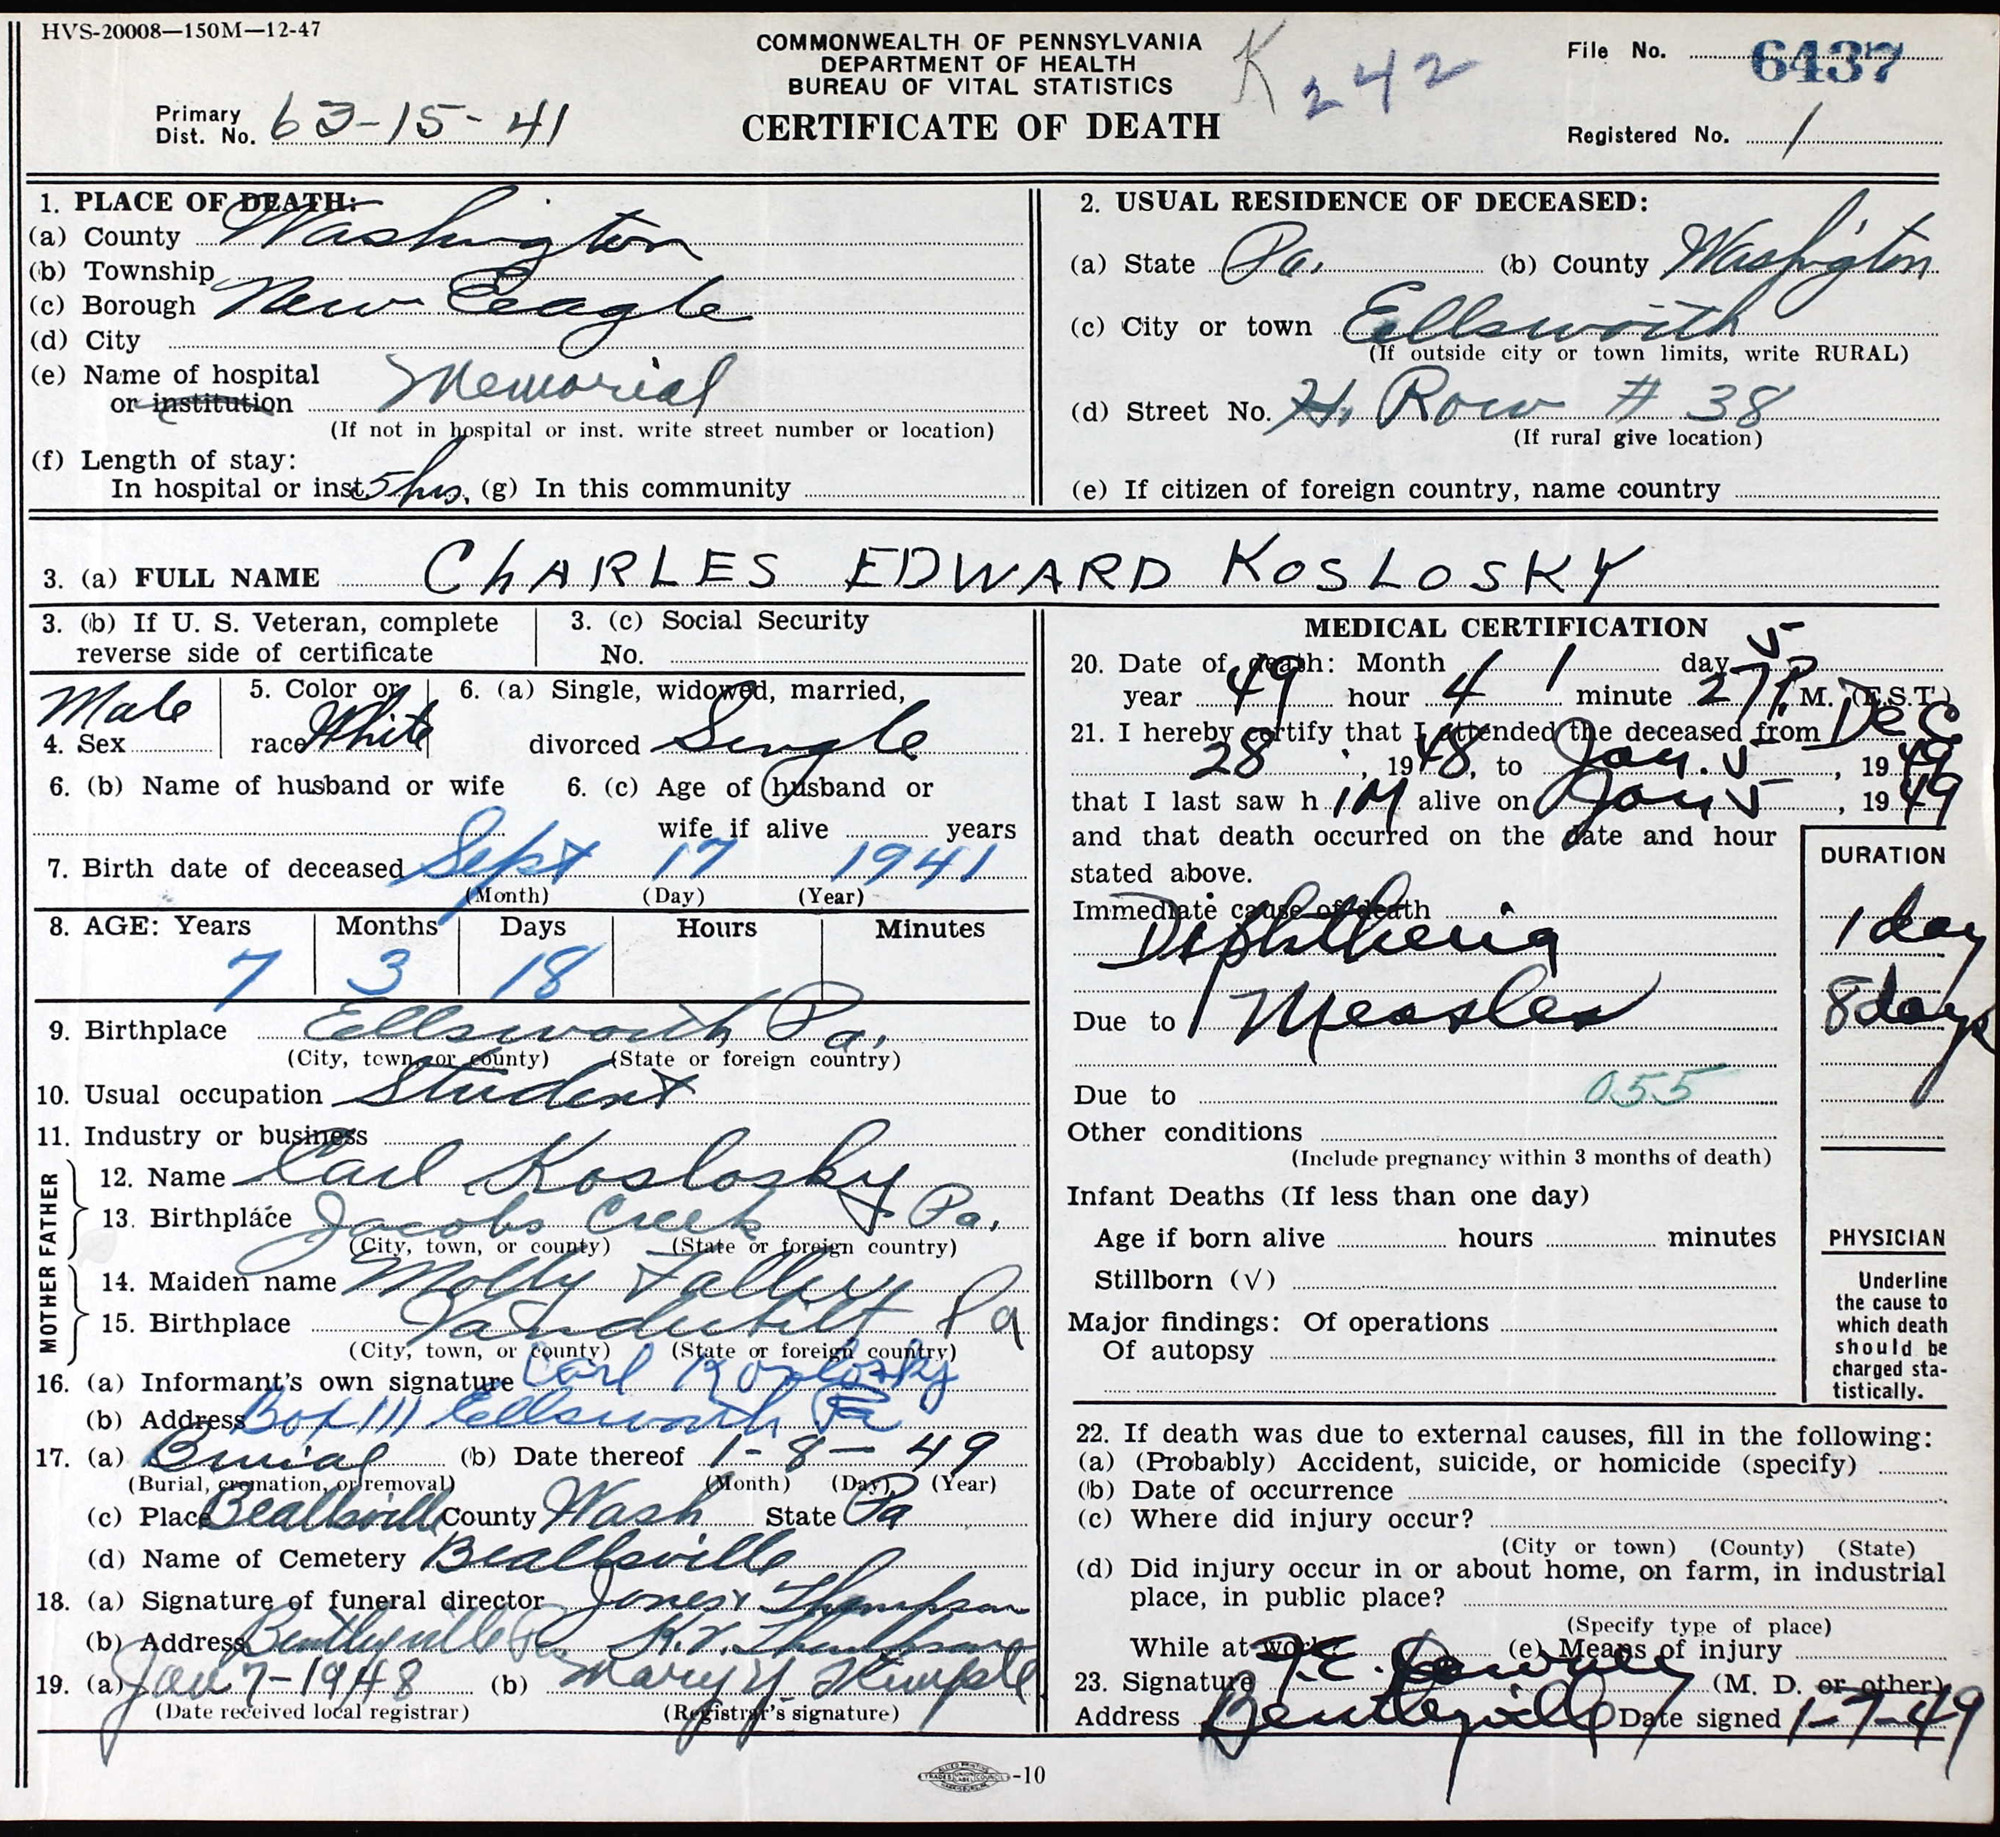 HVS-20008—150M—12-47
COMMONWEALTH OF PENNSYLVANIA
DEPARTMENT OF HEALTH
BUREAU OF VITAL STATISTICS
CERTIFICATE OF DEATH
K 242
File No. 6437
Primary
Dist. No. 63-15-41
Registered No. 1
1. PLACE OF DEATH:
(a) County Washington
(b) Township
(c) Borough New Eagle
(d) City
(e) Name of hospital
or institution Memorial
(If not in hospital or inst. write street number or location)
(f) Length of stay:
In hospital or inst. 5 hrs. (g) In this community
2. USUAL RESIDENCE OF DECEASED:
(a) State Pa. (b) County Washington
(c) City or town Ellsworth
(If outside city or town limits, write RURAL)
(d) Street No. H. Row # 38
(If rural give location)
(e) If citizen of foreign country, name country
3. (a) FULL NAME CHARLES EDWARD KOSLOSKY
3. (b) If U. S. Veteran, complete
reverse side of certificate
3. (c) Social Security
No.
4. Sex Male
5. Color or
race White
6. (a) Single, widowed, married,
divorced Single
6. (b) Name of husband or wife
6. (c) Age of husband or
wife if alive years
7. Birth date of deceased Sept 17 1941
(Month) (Day) (Year)
8. AGE: Years Months Days Hours Minutes
7 3 18
9. Birthplace Ellsworth, Pa.
(City, town, or county) (State or foreign country)
10. Usual occupation Student
11. Industry or business
FATHER
12. Name Carl Koslosky
13. Birthplace Jacobs Creek Pa.
(City, town, or county) (State or foreign country)
MOTHER
14. Maiden name Molly
15. Birthplace Vanderbilt Pa
(City, town, or county) (State or foreign country)
16. (a) Informant's own signature Carl Koslosky
(b) Address Box 111 Ellsworth Pa
17. (a) Burial (b) Date thereof 1-8-49
(Burial, cremation, or removal) (Month) (Day) (Year)
(c) Place Beallsville County Wash State Pa
(d) Name of Cemetery Beallsville
18. (a) Signature of funeral director Jones & Thompson
(b) Address Bentleyville Pa K.V. Thompson
19. (a) Jan 7-1948 (b) Mary Y.
(Date received local registrar) (Registrar's signature)
MEDICAL CERTIFICATION
20. Date of death: Month 1 day 5
year 49 hour 4 minute 27 P. M. (E.S.T.)
21. I hereby certify that I attended the deceased from Dec
28, 1948, to Jan. 5, 1949
that I last saw h im alive on Jan 5, 1949
and that death occurred on the date and hour
stated above.
DURATION
Immediate cause of death
Diphtheria 1 day
Due to Measles 8 days
Due to 055
Other conditions
(Include pregnancy within 3 months of death)
Infant Deaths (If less than one day)
Age if born alive hours minutes
Stillborn (√)
Major findings: Of operations
Of autopsy
PHYSICIAN
Underline
the cause to
which death
should be
charged sta-
tistically.
22. If death was due to external causes, fill in the following:
(a) (Probably) Accident, suicide, or homicide (specify)
(b) Date of occurrence
(c) Where did injury occur?
(City or town) (County) (State)
(d) Did injury occur in or about home, on farm, in industrial
place, in public place?
(Specify type of place)
While at work? (e) Means of injury
23. Signature (M. D. or other)
Address Bentleyville Date signed 1-7-49
-10